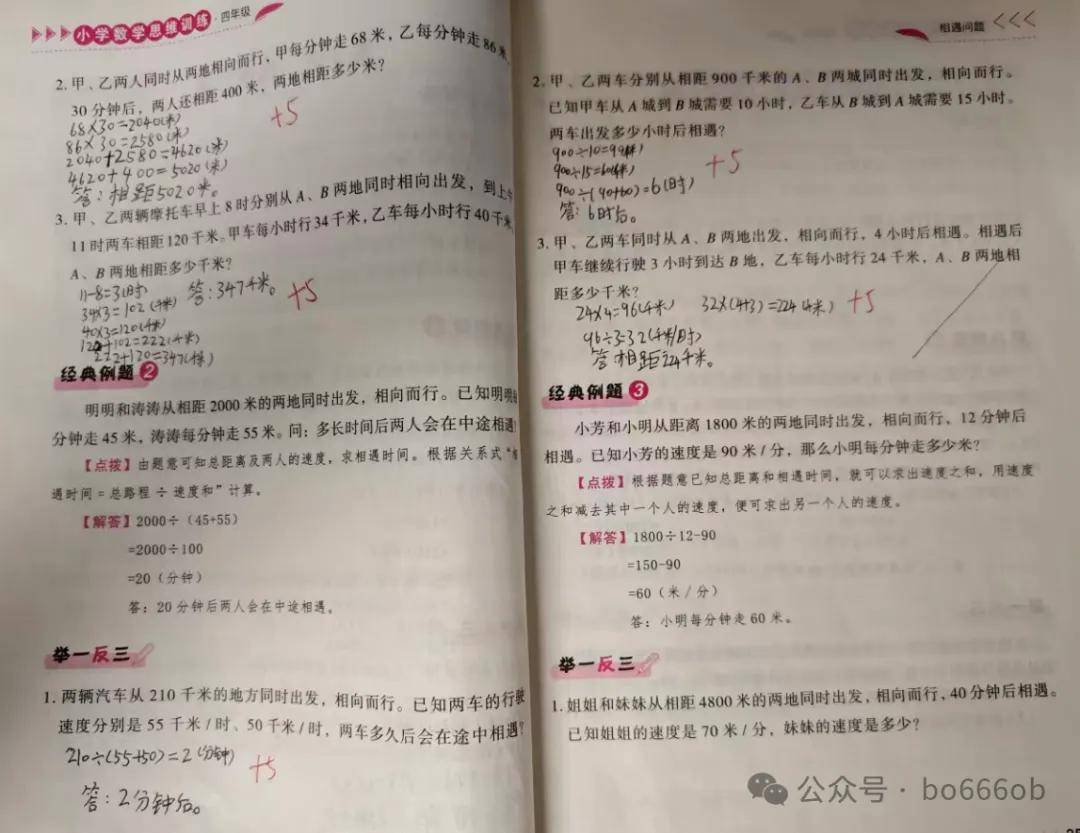 小学数学思维训练·四年级
2. 甲、乙两人同时从两地相向而行，甲每分钟走68米，乙每分钟走86米，
30分钟后，两人还相距400米，两地相距多少米？
68×30=2040(米)
86×30=2580(米)
+5
2040+2580=4620(米)
4620+400=5020(米)
答：相距5020米。
3. 甲、乙两辆摩托车早上8时分别从A、B两地同时相向出发，到上午
11时两车相距120千米。甲车每小时行34千米，乙车每小时行40千米，
A、B两地相距多少千米？
11-8=3(时) 答：347千米。
+5
34×3=102(千米)
40×3=120(千米)
120+102=222(千米)
222+120=347(千米)
经典例题 2
明明和涛涛从相距2000米的两地同时出发，相向而行。已知明明每
分钟走45米，涛涛每分钟走55米。问：多长时间后两人会在中途相遇？
【点拨】由题意可知总距离及两人的速度，求相遇时间。根据关系式“相
遇时间=总路程÷速度和”计算。
【解答】2000÷（45+55）
=2000÷100
=20（分钟）
答：20分钟后两人会在中途相遇。
举一反三
1. 两辆汽车从210千米的地方同时出发，相向而行。已知两车的行驶
速度分别是55千米/时、50千米/时，两车多久后会在途中相遇？
210÷(55+50)=2(分钟)
+5
答：2分钟后。
相遇问题
2. 甲、乙两车分别从相距900千米的A、B两城同时出发，相向而行。
已知甲车从A城到B城需要10小时，乙车从B城到A城需要15小时。
两车出发多少小时后相遇？
900÷10=90(千米)
900÷15=60(千米)
+5
900÷(90+60)=6(时)
答：6时后。
3. 甲、乙两车同时从A、B两地出发，相向而行，4小时后相遇。相遇后
甲车继续行驶3小时到达B地，乙车每小时行24千米，A、B两地相
距多少千米？
24×4=96(千米) 32×(4+3)=224(千米) +5
96÷3=32(千米/时)
答相距224千米。
经典例题 3
小芳和小明从距离1800米的两地同时出发，相向而行，12分钟后
相遇。已知小芳的速度是90米/分，那么小明每分钟走多少米？
【点拨】根据题意已知总距离和相遇时间，就可以求出速度之和，用速度
之和减去其中一个人的速度，便可求出另一个人的速度。
【解答】1800÷12-90
=150-90
=60（米/分）
答：小明每分钟走60米。
举一反三
1. 姐姐和妹妹从相距4800米的两地同时出发，相向而行，40分钟后相遇。
已知姐姐的速度是70米/分，妹妹的速度是多少？
公众号·bo666ob